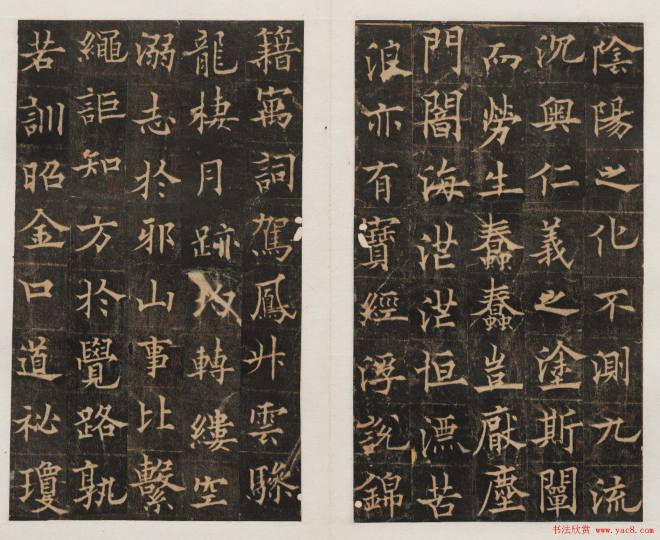 陰陽之化不測九流
沉輿仁義之塗斯闡
而勞生蠢蠢豈厭塵
門闇海茫茫恒漂苦
浪亦有寶經浮説錦
籍寓詞駕鳳升雲驂
龍棲月跡均轉縷空
溺志於邪山事比繫
繩詎知方於覺路孰
若訓昭金口道祕瓊
书法欣赏 www.yac8.com